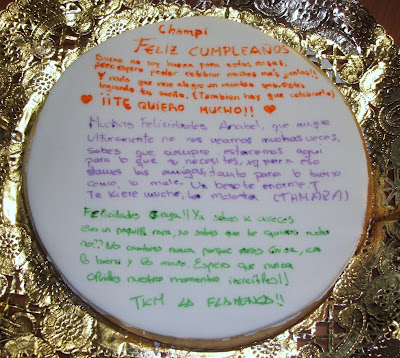 Champi
FELIZ CUMPLEAÑOS
Bueno no soy buena para estas cosas,
pero espero poder celebrar muchos más juntas!!
Y nada que me alegro un montón que estés
logrando tu sueño. (También hay que celebrarlo)
¡¡TE QUIERO MUCHO!!
Muchas Felicidades Anabel, que aunque
últimamente no nos veamos muchas veces,
sabes que siempre estaremos aquí
para lo que tú necesites, xq para eso
stamos las amigas, tanto para lo bueno
como lo malo. Un besote enorme T
Te kiere mucho, la melona (TAMARA)
Felicidades guapa!! Ya sabes k a veces
soy un poquito rara, no sabes que te quiero mucho
no?? No cambies nunca porque eres única, con
lo bueno y lo malo. Espero que nunca
olvides nuestros momentos increíbles!!
TKM LA FLAMENCA!!